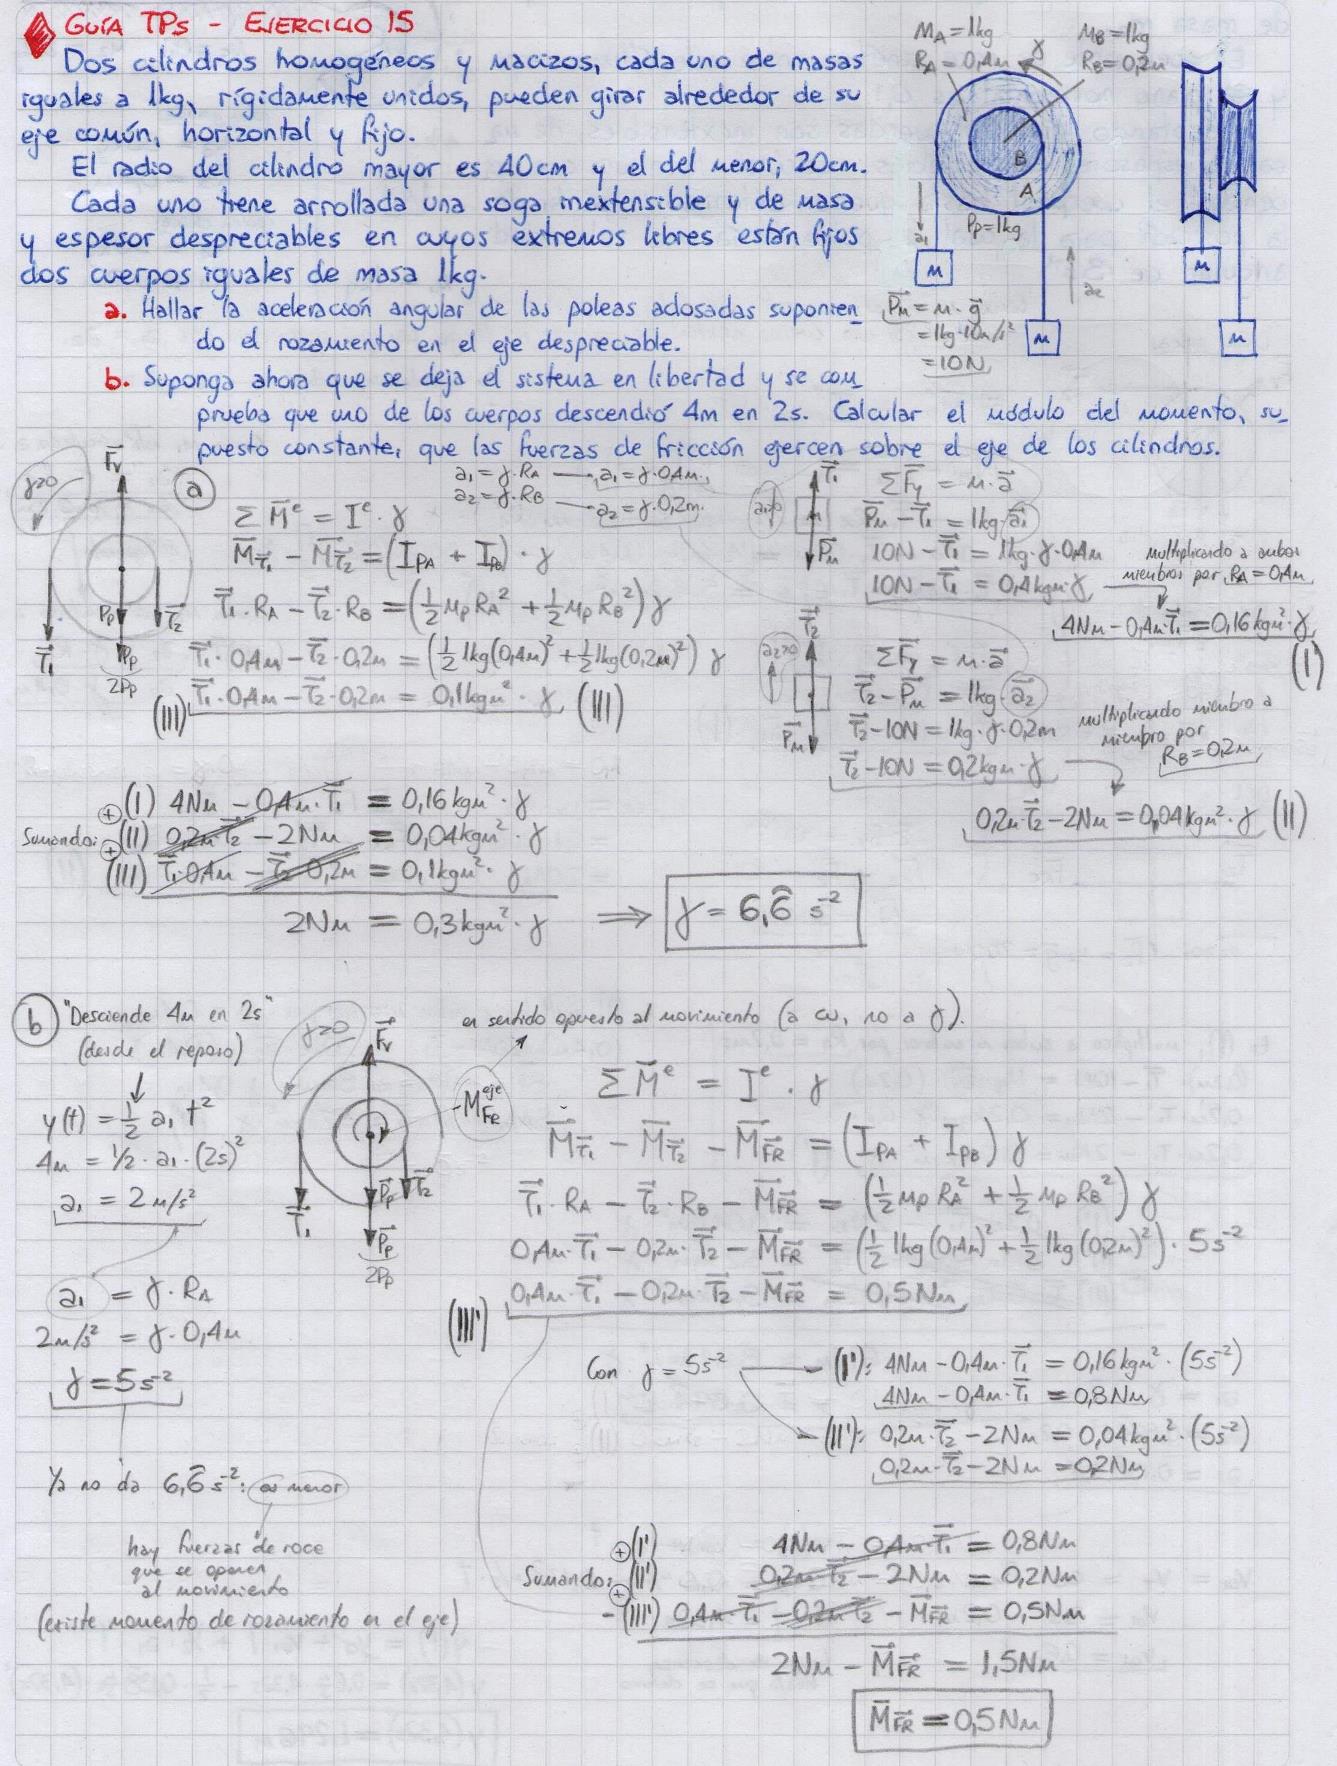 GUÍA TPs - EJERCICIO 15
Dos cilindros homogéneos y macizos, cada uno de masas
iguales a 1kg, rígidamente unidos, pueden girar alrededor de su
eje común, horizontal y fijo.
El radio del cilindro mayor es 40cm y el del menor, 20cm.
Cada uno tiene arrollada una soga inextensible y de masa
y espesor despreciables en cuyos extremos libres están fijos
dos cuerpos iguales de masa 1kg.
a. Hallar la aceleración angular de las poleas adosadas suponien_
do el rozamiento en el eje despreciable.
b. Suponga ahora que se deja el sistema en libertad y se com_
prueba que uno de los cuerpos descendió 4m en 2s. Calcular el módulo del momento, su_
puesto constante, que las fuerzas de fricción ejercen sobre el eje de los cilindros.
M_A = 1kg
R_A = 0,4m
γ
M_B = 1kg
R_B = 0,2m
B
A
P_P = 1kg
a₁
a₂
m
m
m
m
P⃗_m = m · g⃗
= 1kg·10m/s²
= 10N
γ>0
F⃗v
T⃗₁
P⃗p
T⃗₂
P⃗p
2Pp
a
a₁ = γ·R_A → a₁ = γ·0,4m
a₂ = γ·R_B → a₂ = γ·0,2m
Σ M̄ᵉ = Iᵉ · γ
M̄_T⃗₁ − M̄_T⃗₂ = (I_PA + I_PB) · γ
T⃗₁ · R_A − T⃗₂ · R_B = (½ m_P R_A² + ½ m_P R_B²) γ
T⃗₁ · 0,4m − T⃗₂ · 0,2m = (½ 1kg(0,4m)² + ½ 1kg(0,2m)²) γ
(III) T⃗₁ · 0,4m − T⃗₂ · 0,2m = 0,1kgm² · γ (III)
a₁>0
T⃗₁
m
P⃗_m
ΣF⃗y = m·a⃗
P⃗_m − T⃗₁ = 1kg·a⃗₁
10N − T⃗₁ = 1kg·γ·0,4m
10N − T⃗₁ = 0,4kgm·γ
multiplicando a ambos
miembros por R_A = 0,4m
4Nm − 0,4m·T⃗₁ = 0,16kgm²·γ
(I)
a₂>0
T⃗₂
P⃗_m
ΣF⃗y = m·a⃗
T⃗₂ − P⃗_m = 1kg·a⃗₂
T⃗₂ − 10N = 1kg·γ·0,2m
T⃗₂ − 10N = 0,2kgm·γ
multiplicando miembro a
miembro por
R_B = 0,2m
0,2m·T⃗₂ − 2Nm = 0,04kgm²·γ (II)
Sumando:
⊕ (I) 4Nm − 0,4m·T⃗₁ = 0,16kgm²·γ
⊕ (II) 0,2m·T⃗₂ − 2Nm = 0,04kgm²·γ
(III) T⃗₁·0,4m − T⃗₂·0,2m = 0,1kgm²·γ
2Nm = 0,3kgm²·γ ⟹ γ = 6,6̂ s⁻²
b "Desciende 4m en 2s"
(desde el reposo)
y(t) = ½ a₁ t²
4m = ½·a₁·(2s)²
a₁ = 2m/s²
a₁ = γ·R_A
2m/s² = γ·0,4m
γ = 5s⁻²
Ya no da 6,6̂ s⁻²: es menor
hay fuerzas de roce
que se oponen
al movimiento
(existe momento de rozamiento en el eje)
γ>0
F⃗v
−M_FR^eje
T⃗₁
P⃗p
T⃗₂
P⃗p
2Pp
en sentido opuesto al movimiento (a ω, no a γ).
Σ M̄ᵉ = Iᵉ · γ
M̄_T⃗₁ − M̄_T⃗₂ − M̄_FR = (I_PA + I_PB) γ
T⃗₁·R_A − T⃗₂·R_B − M̄_FR = (½ m_P R_A² + ½ m_P R_B²) γ
0,4m·T⃗₁ − 0,2m·T⃗₂ − M̄_FR = (½ 1kg(0,4m)² + ½ 1kg(0,2m)²)·5s⁻²
(III') 0,4m·T⃗₁ − 0,2m·T⃗₂ − M̄_FR = 0,5Nm
Con γ = 5s⁻²
(I'): 4Nm − 0,4m·T⃗₁ = 0,16kgm²·(5s⁻²)
4Nm − 0,4m·T⃗₁ = 0,8Nm
(II'): 0,2m·T⃗₂ − 2Nm = 0,04kgm²·(5s⁻²)
0,2m·T⃗₂ − 2Nm = 0,2Nm
Sumando:
⊕ (I') 4Nm − 0,4m·T⃗₁ = 0,8Nm
⊕ (II') 0,2m·T⃗₂ − 2Nm = 0,2Nm
− (III') 0,4m·T⃗₁ − 0,2m·T⃗₂ − M̄_FR = 0,5Nm
2Nm − M̄_FR = 1,5Nm
M̄_FR = 0,5Nm